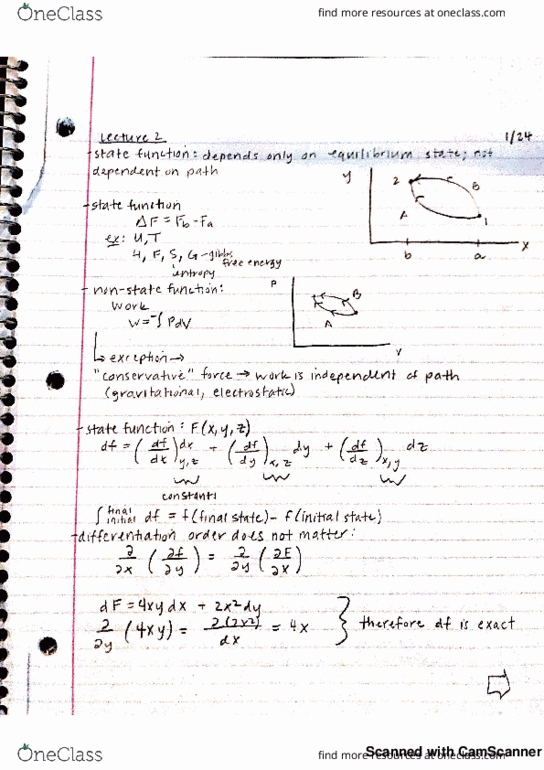 OneClass
find more resources at oneclass.com
Lecture 2
1/24
-state function: depends only on equilibrium state; not
dependent on path
y
2
B
A
1
b
a
x
-state function
ΔF = Fb - Fa
ex: U, T
H, F, S, G - gibbs free energy
entropy
- non-state function:
Work
W = -∫ PdV
P
B
A
V
↳ exception →
"conservative" force → work is independent of path
(gravitational, electrostatic)
-state function: F(x, y, z)
df = (df/dx)y,z dx + (df/dy)x,z dy + (df/dz)x,y dz
constant
∫ final initial df = f(final state) - f(initial state)
-differentiation order does not matter:
∂/∂x (∂f/∂y) = ∂/∂y (∂F/∂x)
dF = 4xy dx + 2x² dy
∂/∂y (4xy) = ∂(2x²)/dx = 4x } therefore df is exact
OneClass
find more resources at oneclass.com
Scanned with CamScanner